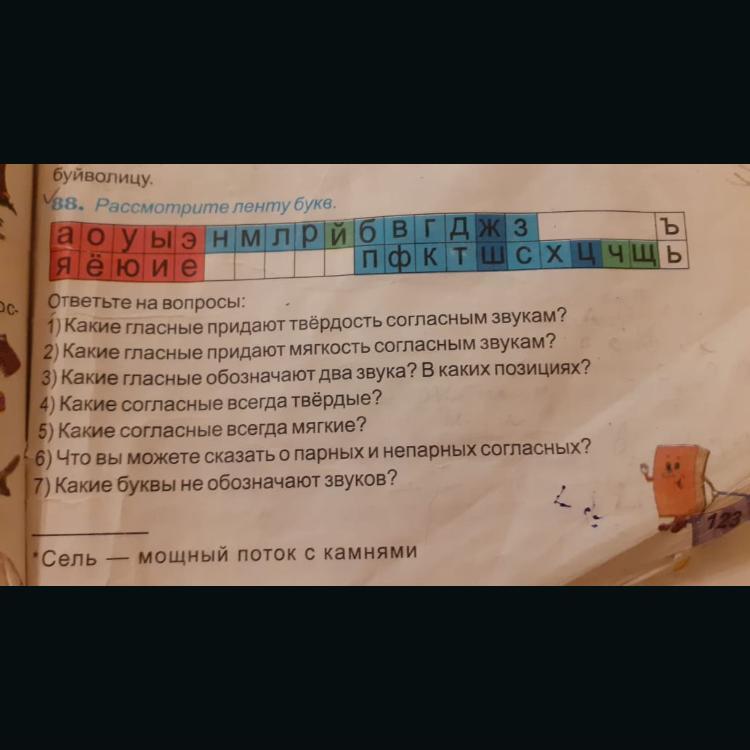 буйволицу.
88. Рассмотрите ленту букв.
а о у ы э н м л р й б в г д ж з ъ
я ё ю и е п ф к т ш с х ц ч щ ь
Ответьте на вопросы:
1) Какие гласные придают твёрдость согласным звукам?
2) Какие гласные придают мягкость согласным звукам?
3) Какие гласные обозначают два звука? В каких позициях?
4) Какие согласные всегда твёрдые?
5) Какие согласные всегда мягкие?
6) Что вы можете сказать о парных и непарных согласных?
7) Какие буквы не обозначают звуков?
*Сель — мощный поток с камнями
123